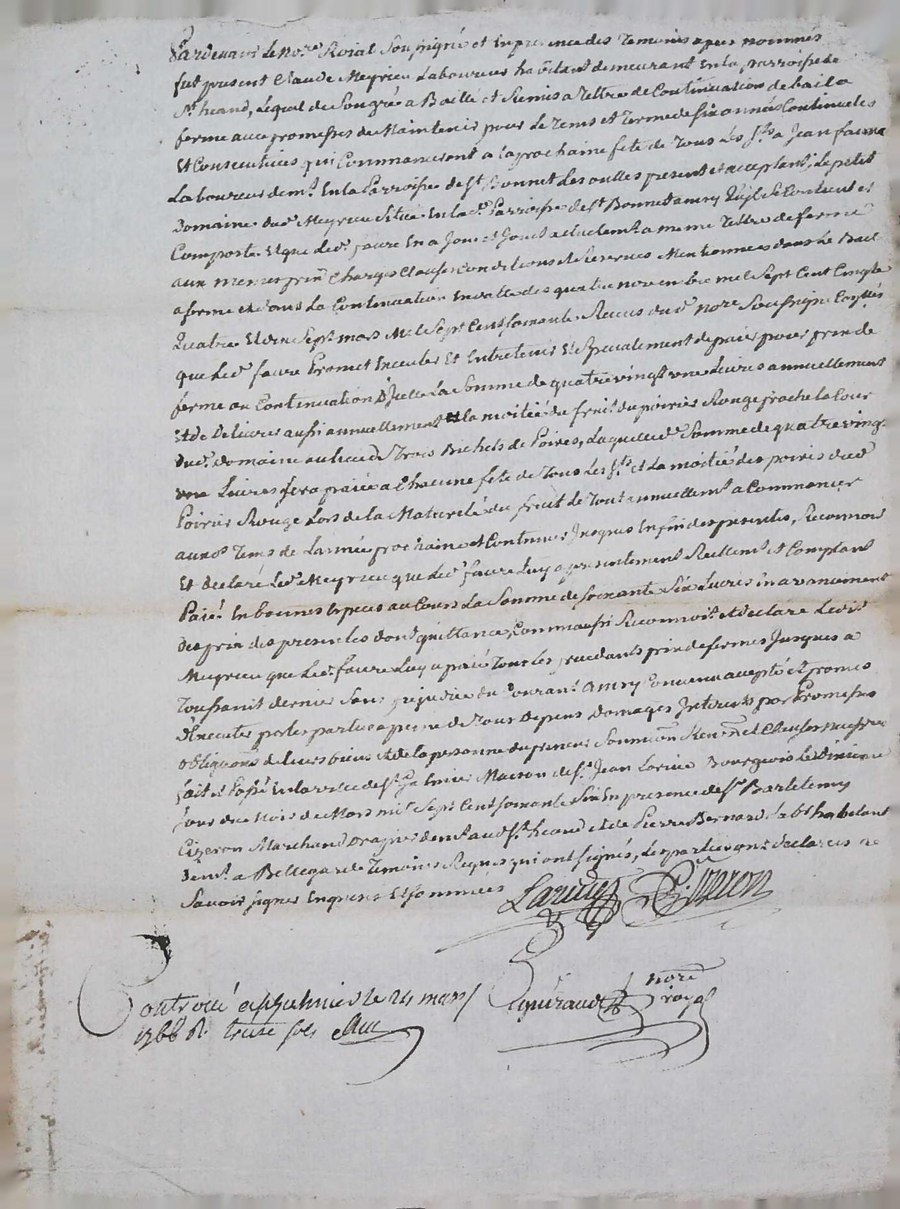 Pardevant le No.re Roial Soussigné et En presence des Temoins apres nommés
fut present Claude Meyrieu Laboureur habitant demeurant En la parroisse de
St heand, Lequel de Son gré a Baillé et Remis a tittre de Continuation de bail a
ferme avec promesses de Maintenir pour Le tems et terme de Six années Continuelles
Et Consecutives qui Commanceront a la prochaine fete de Tous Les Sts a Jean faure
Laboureur dem.t En la Parroisse de St Bonnet Les oulles present et acceptant, Le petit
Domaine dud. Meyrieu Situé En lad. Parroisse de St Bonnet Se Contient et
Comporte Et que led. faure En a Joui et Jouit actuelem.t a meme tittre de ferme
aux memes prix Charges Clauses Conditions et Reserves Mentionnées dans Le Bail
a ferme et dans La Continuation En datte des quatre novembre mil Sept Cent Cinqte
Quatre Et dix Sept mars Mil Sept Cent Soixante Recus dud. no.re Soussigné
que Led. faure Promet Executer Et Entretenir Et Specialement de paier pour prix de
ferme ou Continuation D'Icelle La Somme de quatre vingt une Livres annuellement
Et de Delivrer aussi annuellement la moitié du fruit du poirier Rouge proche la Cour
dud. domaine au lieu de Trois Bichets de Poires, Laquelle d. Somme de quatre vingt
une Livres Sera paiée a Chacune fete de Tous Les Sts et La moitié des poires dud.
Poirier Rouge Lors de la Maturité du fruit Le Tout annuellem.t a Commancer
aux d. Tems de L'année prochaine et Continuer Jusques En fin des presentes, Reconnoit
Et declaré Led. Meyrieu que Led. faure Luy a presentement Reellem.t et Comptant
Paié En bonnes Especes au Cours La Somme de Soixante Six Livres En avancement
des prix des presentes dont quittance, Comm aussi Reconnoit et declare Led.
Meyrieu que Led. faure Luy a paié Tous Les precedants prix de fermes Jusques a
Toussaint dernier Sans prejudice du Courant Convenu accepté et promis
D'Executer par les parties a peine de Tous Depens Domages Interets par Promesses
obligations de leurs biens Et de la personne du preneur Soumions Renons et Clauses
fait et Passé En la ville de St Galmier Maison de Sr Jean Larive Bourgeois Le
Jour du Mois de Mars mil Sept Cent Soixante Six En presence de Sr Bartelemy
Cizeron Marchand Drapier dem.t aud. St heand et de Pierre Bernard habitant
dem.t a Bellegarde Temoins Requis qui ont Signés, Les parties ont declarées ne
Savoir Signer Enquises Et Sommées
Larive Cizeron
no.re royal
Controllé a St Galmier le 24 mars
1766 R. treize sols